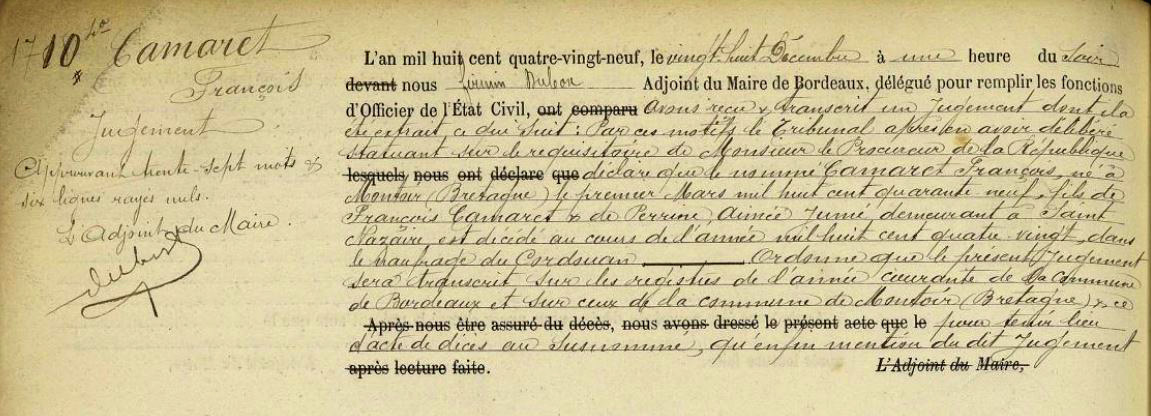 1710
Camaret
François
Jugement
Approuvant trente-sept mots &
six lignes rayés nuls.
L'Adjoint du Maire.
L'an mil huit cent quatre-vingt-neuf, le vingt-huit Décembre à une heure du soir
devant nous Dubon Adjoint du Maire de Bordeaux, délégué pour remplir les fonctions
d'Officier de l'État Civil, ont comparu avons reçu & transcrit un Jugement dont la
extrait a dui suit : Par ces motifs le Tribunal après en avoir délibéré
statuant sur le requisitoire de Monsieur le Procureur de la République
lesquels nous ont déclaré que déclare que le nommé Camaret François, né à
Montoir (Bretagne) le premier Mars mil huit cent quarante neuf, fils de
François Camaret & de Perrine Aimée Jumé, demeurant à Saint
Nazaire, est décédé au cours de l'année mil huit cent quatre vingt, dans
le naufrage du Cordouan Ordonne que le présent Jugement
sera transcrit sur les registres de l'année courante de la commune
de Bordeaux et sur ceux de la commune de Montoir (Bretagne) & ce
Après nous être assuré du décès, nous avons dressé le présent acte que le pour tenir lieu
d'acte de décès au susnommé, qu'enfin mention du dit Jugement
après lecture faite. L'Adjoint du Maire,